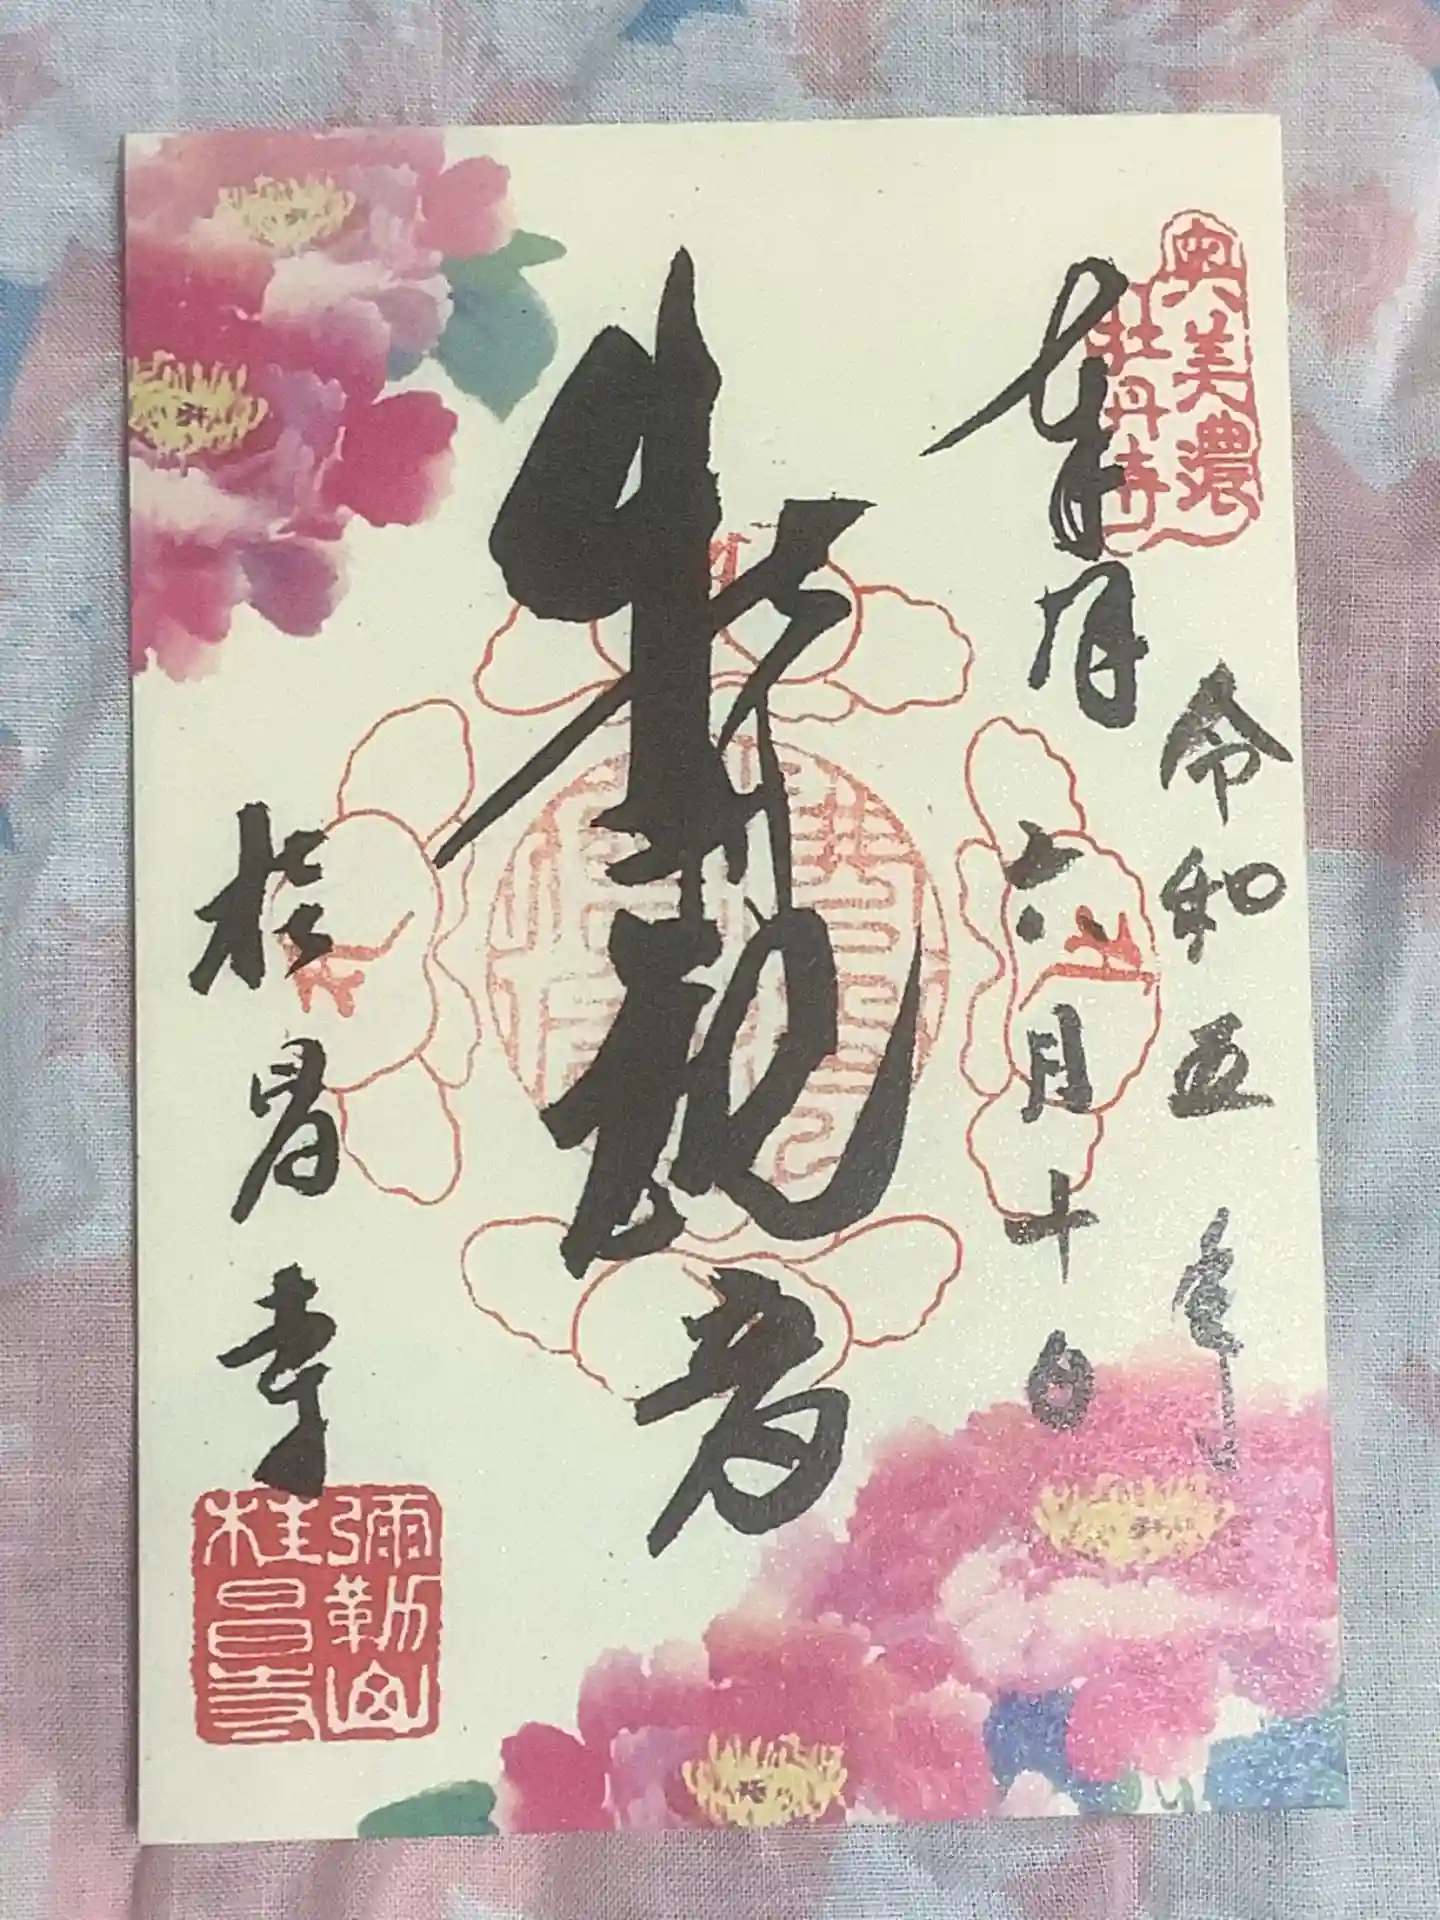 奥美濃
牡丹寺
奉拜
令和五年
六月十日
牡丹観音
桂昌寺
彌勒山
桂昌寺